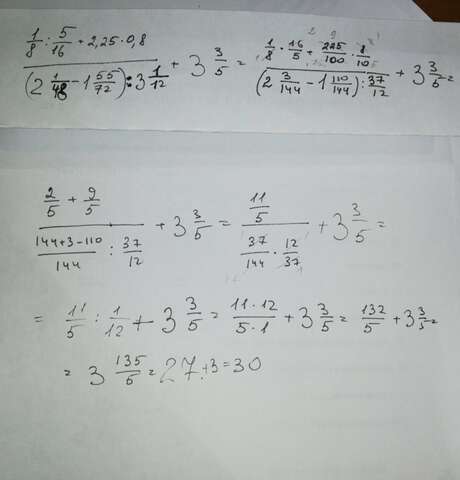 (1/8 : 5/16 + 2,25 · 0,8) / ((2 1/48 - 1 55/72) : 3 1/12) + 3 3/5 = (1/8 · 16/5 + 225/100 · 8/10) / ((2 3/144 - 1 110/144) : 37/12) + 3 3/5 =
(2/5 + 9/5) / ((144+3-110)/144 : 37/12) + 3 3/5 = (11/5) / (37/144 · 12/37) + 3 3/5 =
= 11/5 : 1/12 + 3 3/5 = (11·12)/(5·1) + 3 3/5 = 132/5 + 3 3/5 =
= 3 135/5 = 27+3=30